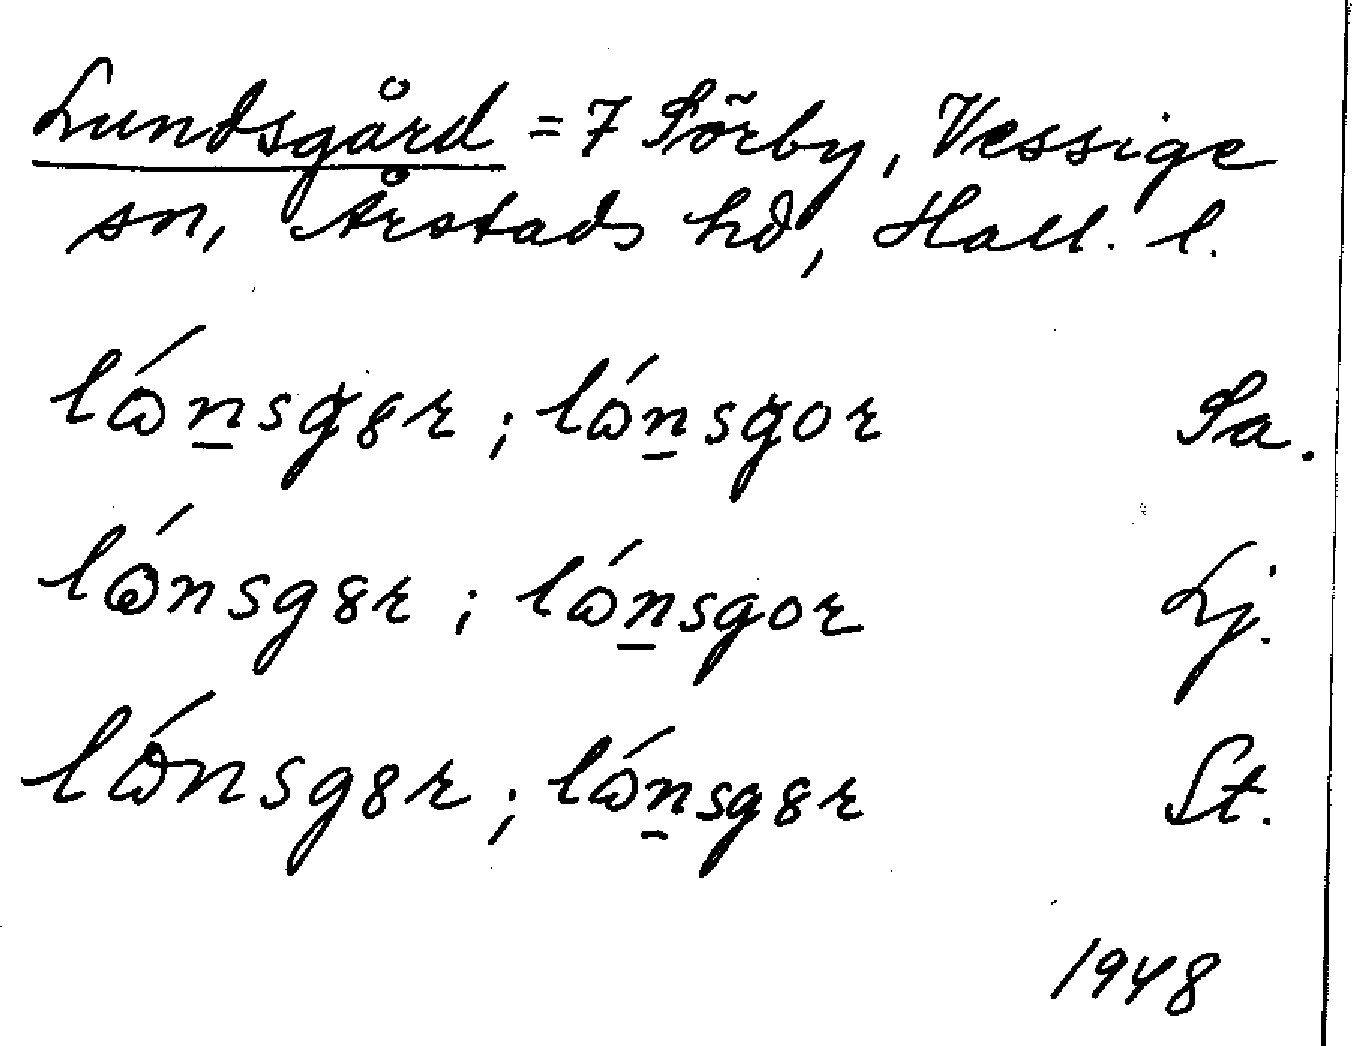 Lundsgård = 7 Sörby, Vessige
sn, Årstads hd, Hall. l.
lɷ́n̲sg8r ; lɷ́n̲sgor Sa.
lɷ́nsg8r ; lɷ́n̲sgor Lj.
lɷ́nsg8r ; lɷ́n̲sg8r St.
1948